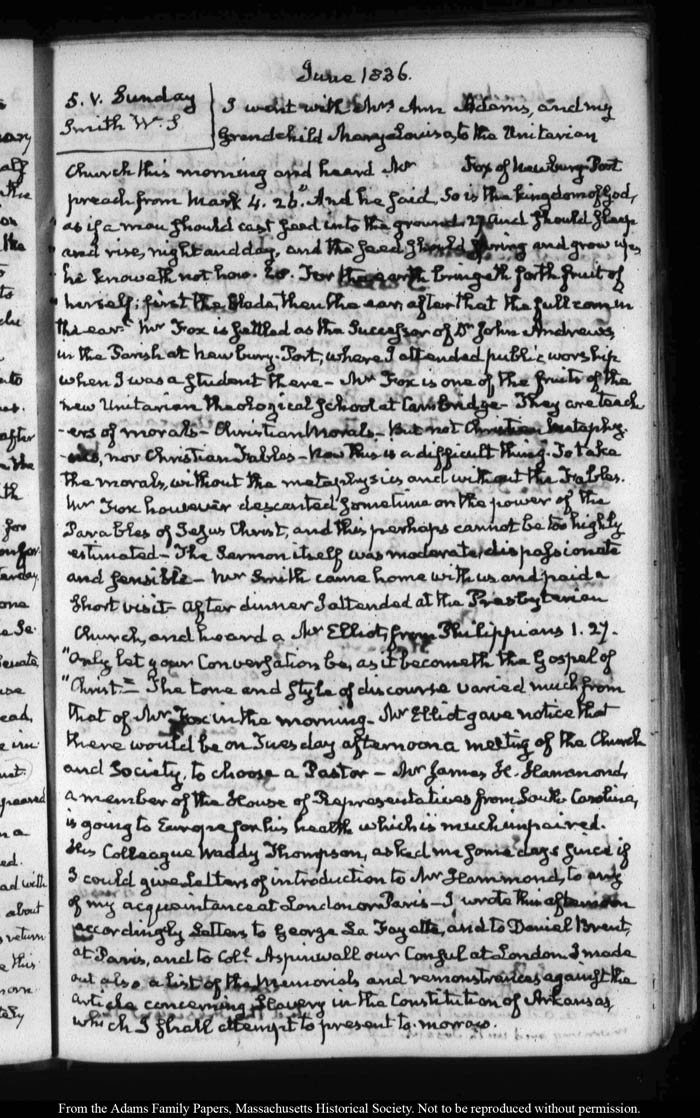 June 1836.
5. V. Sunday
Smith W. S
I went with Mrs Ann Adams, and my
Grandchild Mary Louisa, to the Unitarian
Church this morning and heard Mr Fox of Newbury-Port
preach from Mark 4. 26. "And he said, So is the kingdom of God,
as if a man should cast seed into the ground 27 and should sleep
and rise, night and day, and the seed should spring and grow up,
he knoweth not how. 28. For the earth bringeth forth fruit of
herself; first the blade, then the ear, after that the full corn in
the ear" Mr Fox is settled as the Successor of Dr John Andrews,
in the Parish at Newbury-Port, where I attended public worship
when I was a student there - Mr Fox is one of the fruits of the
new Unitarian theological School at Cambridge - They are teach
-ers of morals - Christian Morals - But not Christian metaphy-
-sics, nor Christian Fables - Now this is a difficult thing. To take
the morals, without the metaphysics and without the Fables.
Mr Fox however descanted sometime on the power of the
Parables of Jesus Christ, and this perhaps cannot be too highly
estimated - The Sermon itself was moderate, dispassionate
and sensible - Mr Smith came home with us and paid a
short visit - After dinner I attended at the Presbyterian
Church, and heard a Mr Elliot, from Philippians 1. 27.
"Only let your Conversation be, as it becometh the Gospel of
"Christ." = The tone and style of discourse varied much from
that of Mr Fox in the morning - Mr Elliot gave notice that
there would be on Tuesday afternoon a meeting of the Church
and Society, to choose a Pastor - Mr James H. Hammond,
a member of the House of Representatives from South Carolina,
is going to Europe for his health which is much impaired.
His Colleague Waddy Thompson, asked me some days since if
I could give Letters of introduction to Mr Hammond, to any
of my acquaintance at London or Paris - I wrote this afternoon
accordingly Letters to George La Fayette, and to Daniel Brent,
at Paris, and to Colt. Aspinwall our Consul at London I made
out also a list of the Memorials and remonstrances against the
article concerning Slavery in the Constitution of Arkansas,
which I shall attempt to present to-morrow.
From the Adams Family Papers, Massachusetts Historical Society. Not to be reproduced without permission.